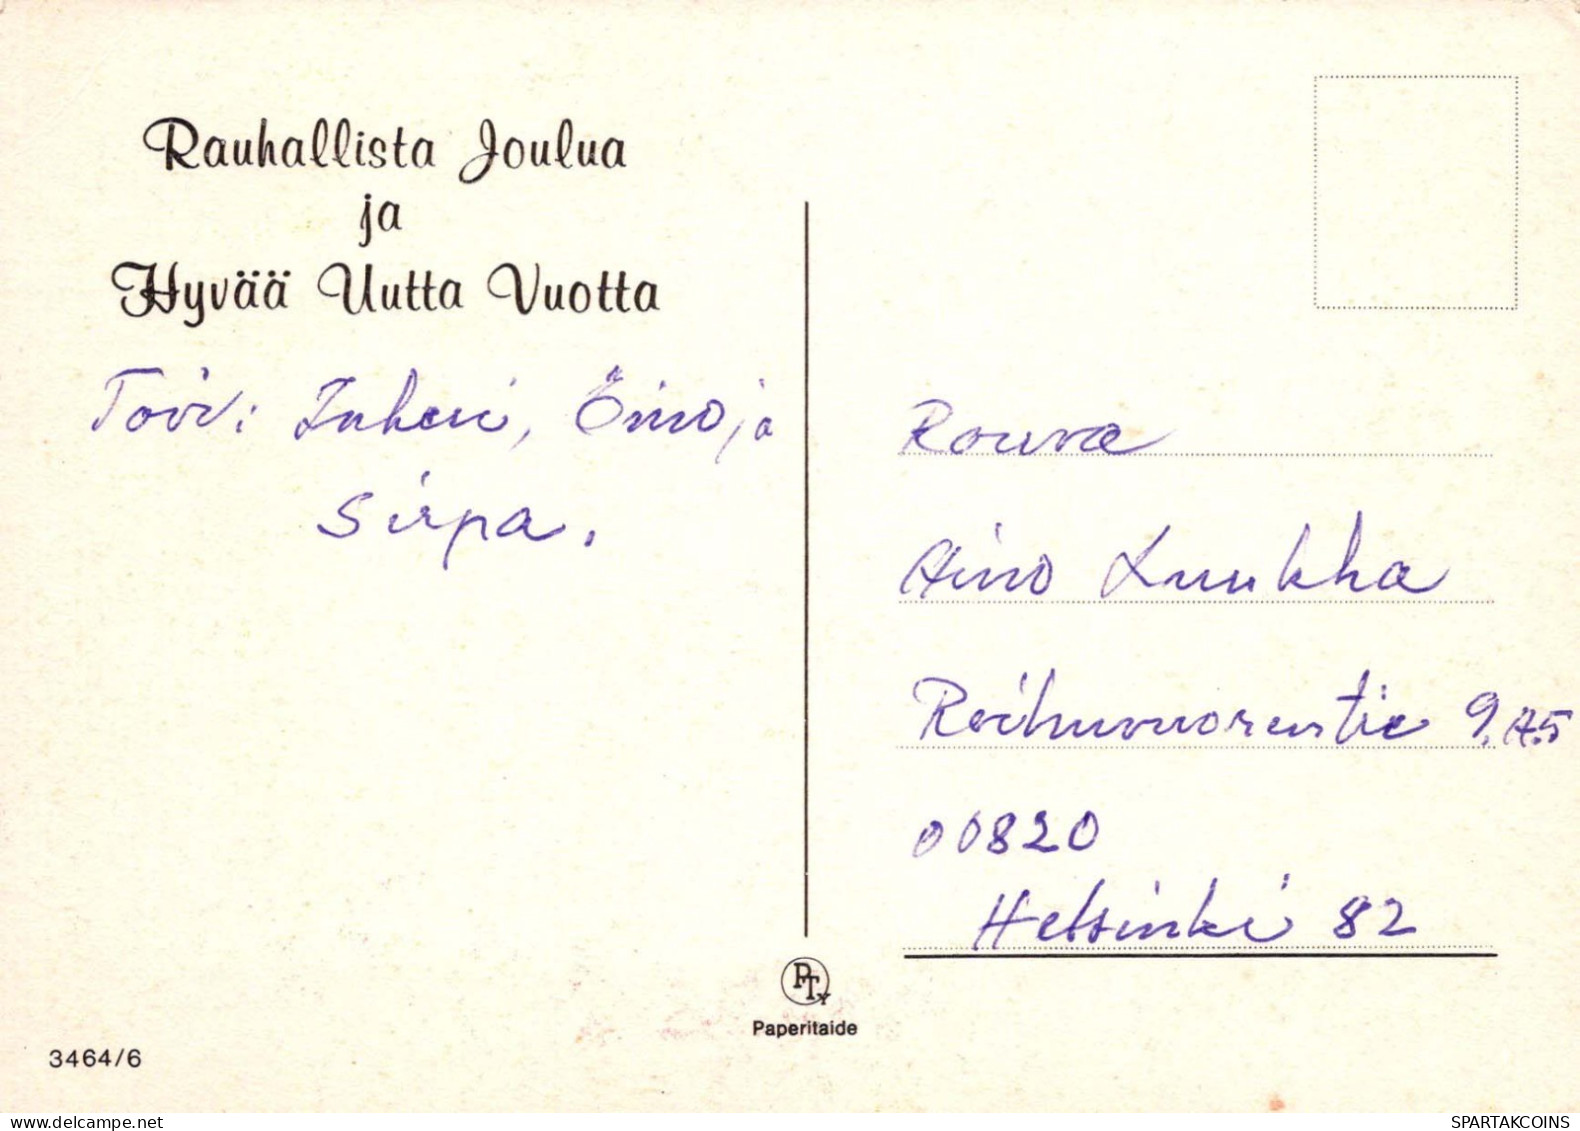 Rauhallista Joulua
ja
Hyvää Uutta Vuotta
Toivi: Inkeri, Eino ja
Sirpa.
Rouva
Aino Luukka
Roihuvuorentie 9. A.5
00820
Helsinki 82
PTy
Paperitaide
3464/6
SPARTAKCOINS